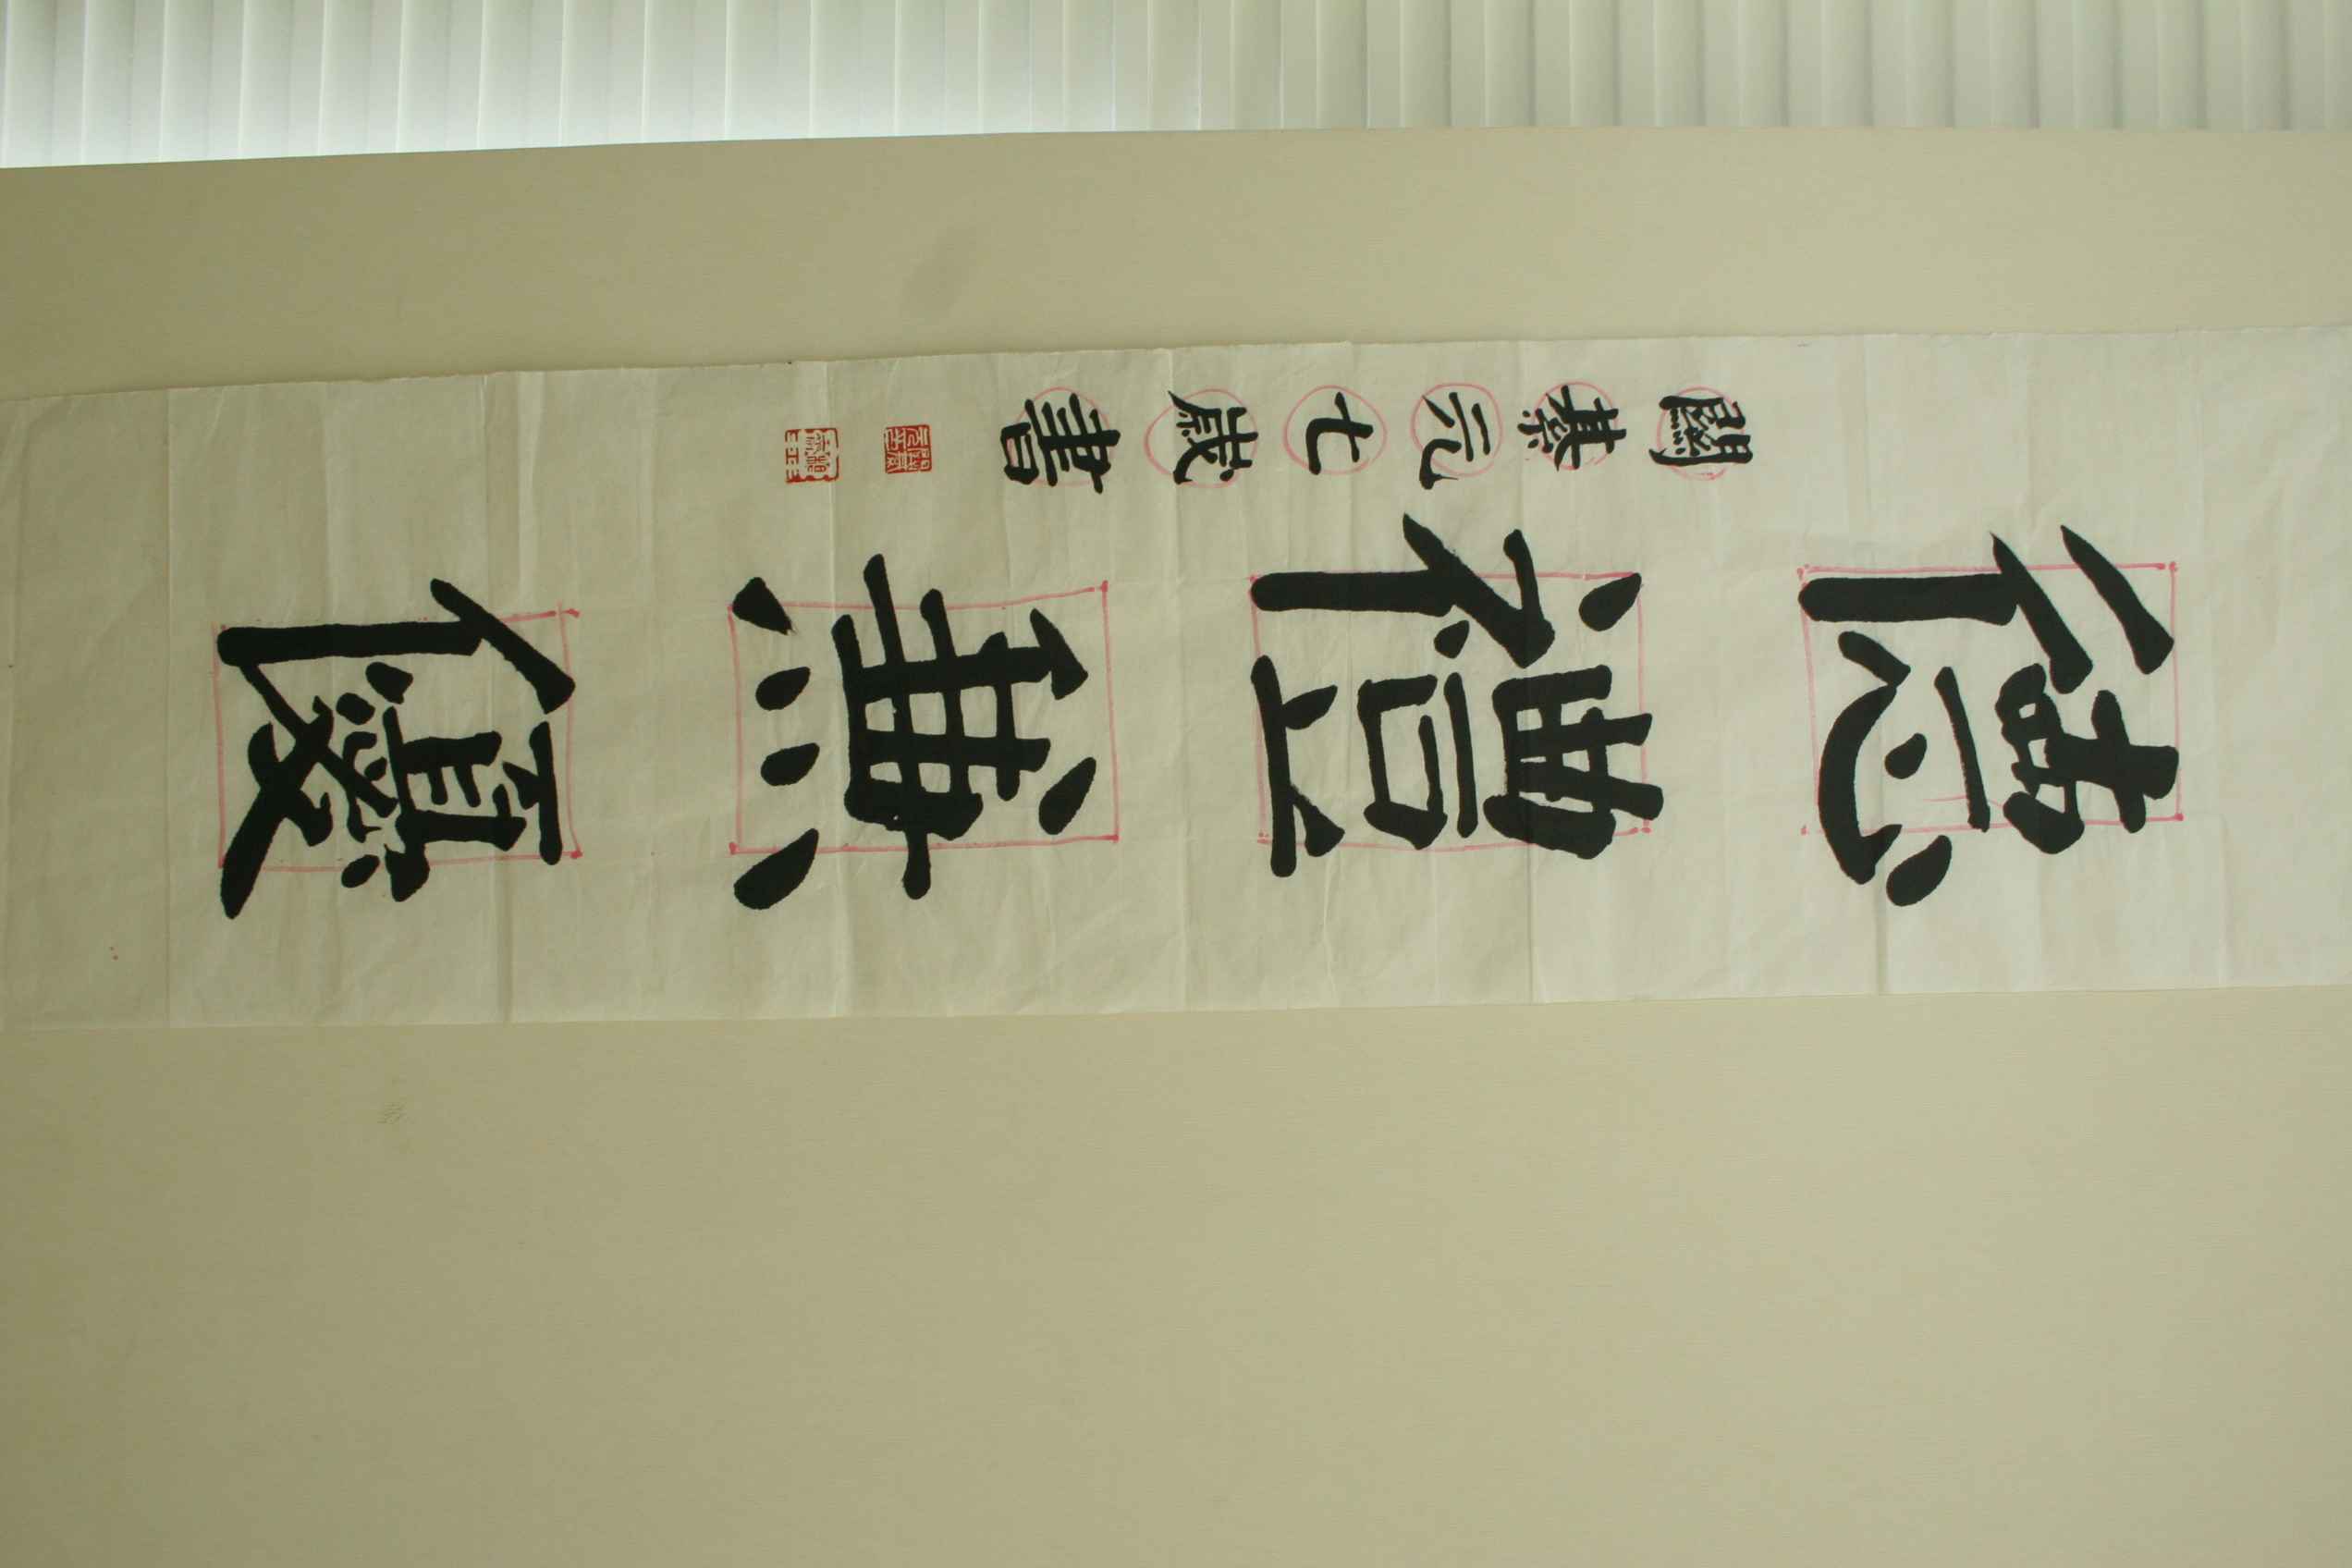 德禮兼優
關慕元七歲書